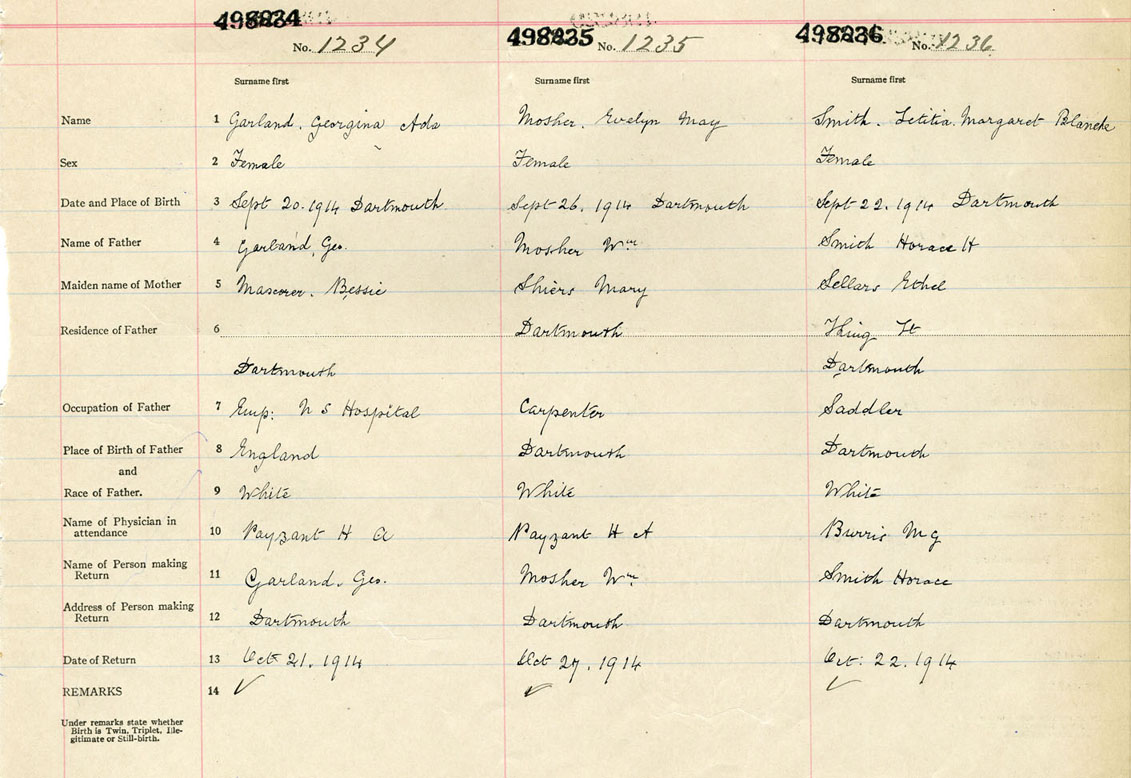 498234 498235 498236
No. 1234 No. 1235 No. 1236
Surname first Surname first Surname first
Name 1 Garland, Georgina Ada Mosher, Evelyn May Smith, Letitia Margaret Blanche
Sex 2 Female Female Female
Date and Place of Birth 3 Sept 20. 1914 Dartmouth Sept 26, 1914 Dartmouth Sept 22, 1914 Dartmouth
Name of Father 4 Garland, Geo. Mosher Wm Smith Horace H
Maiden name of Mother 5 Bessie Shiers Mary Sellars Ethel
Residence of Father 6 Dartmouth King St
Dartmouth Dartmouth
Occupation of Father 7 Emp: N S Hospital Carpenter Saddler
Place of Birth of Father 8 England Dartmouth Dartmouth
and
Race of Father. 9 White White White
Name of Physician in
attendance 10 Payzant H A Payzant H A Burris M G
Name of Person making
Return 11 Garland, Geo. Mosher Wm Smith Horace
Address of Person making
Return 12 Dartmouth Dartmouth Dartmouth
Date of Return 13 Oct 21, 1914 Oct 27, 1914 Oct: 22, 1914
REMARKS 14 ✓ ✓ ✓
Under remarks state whether
Birth is Twin, Triplet, Ille-
gitimate or Still-birth.